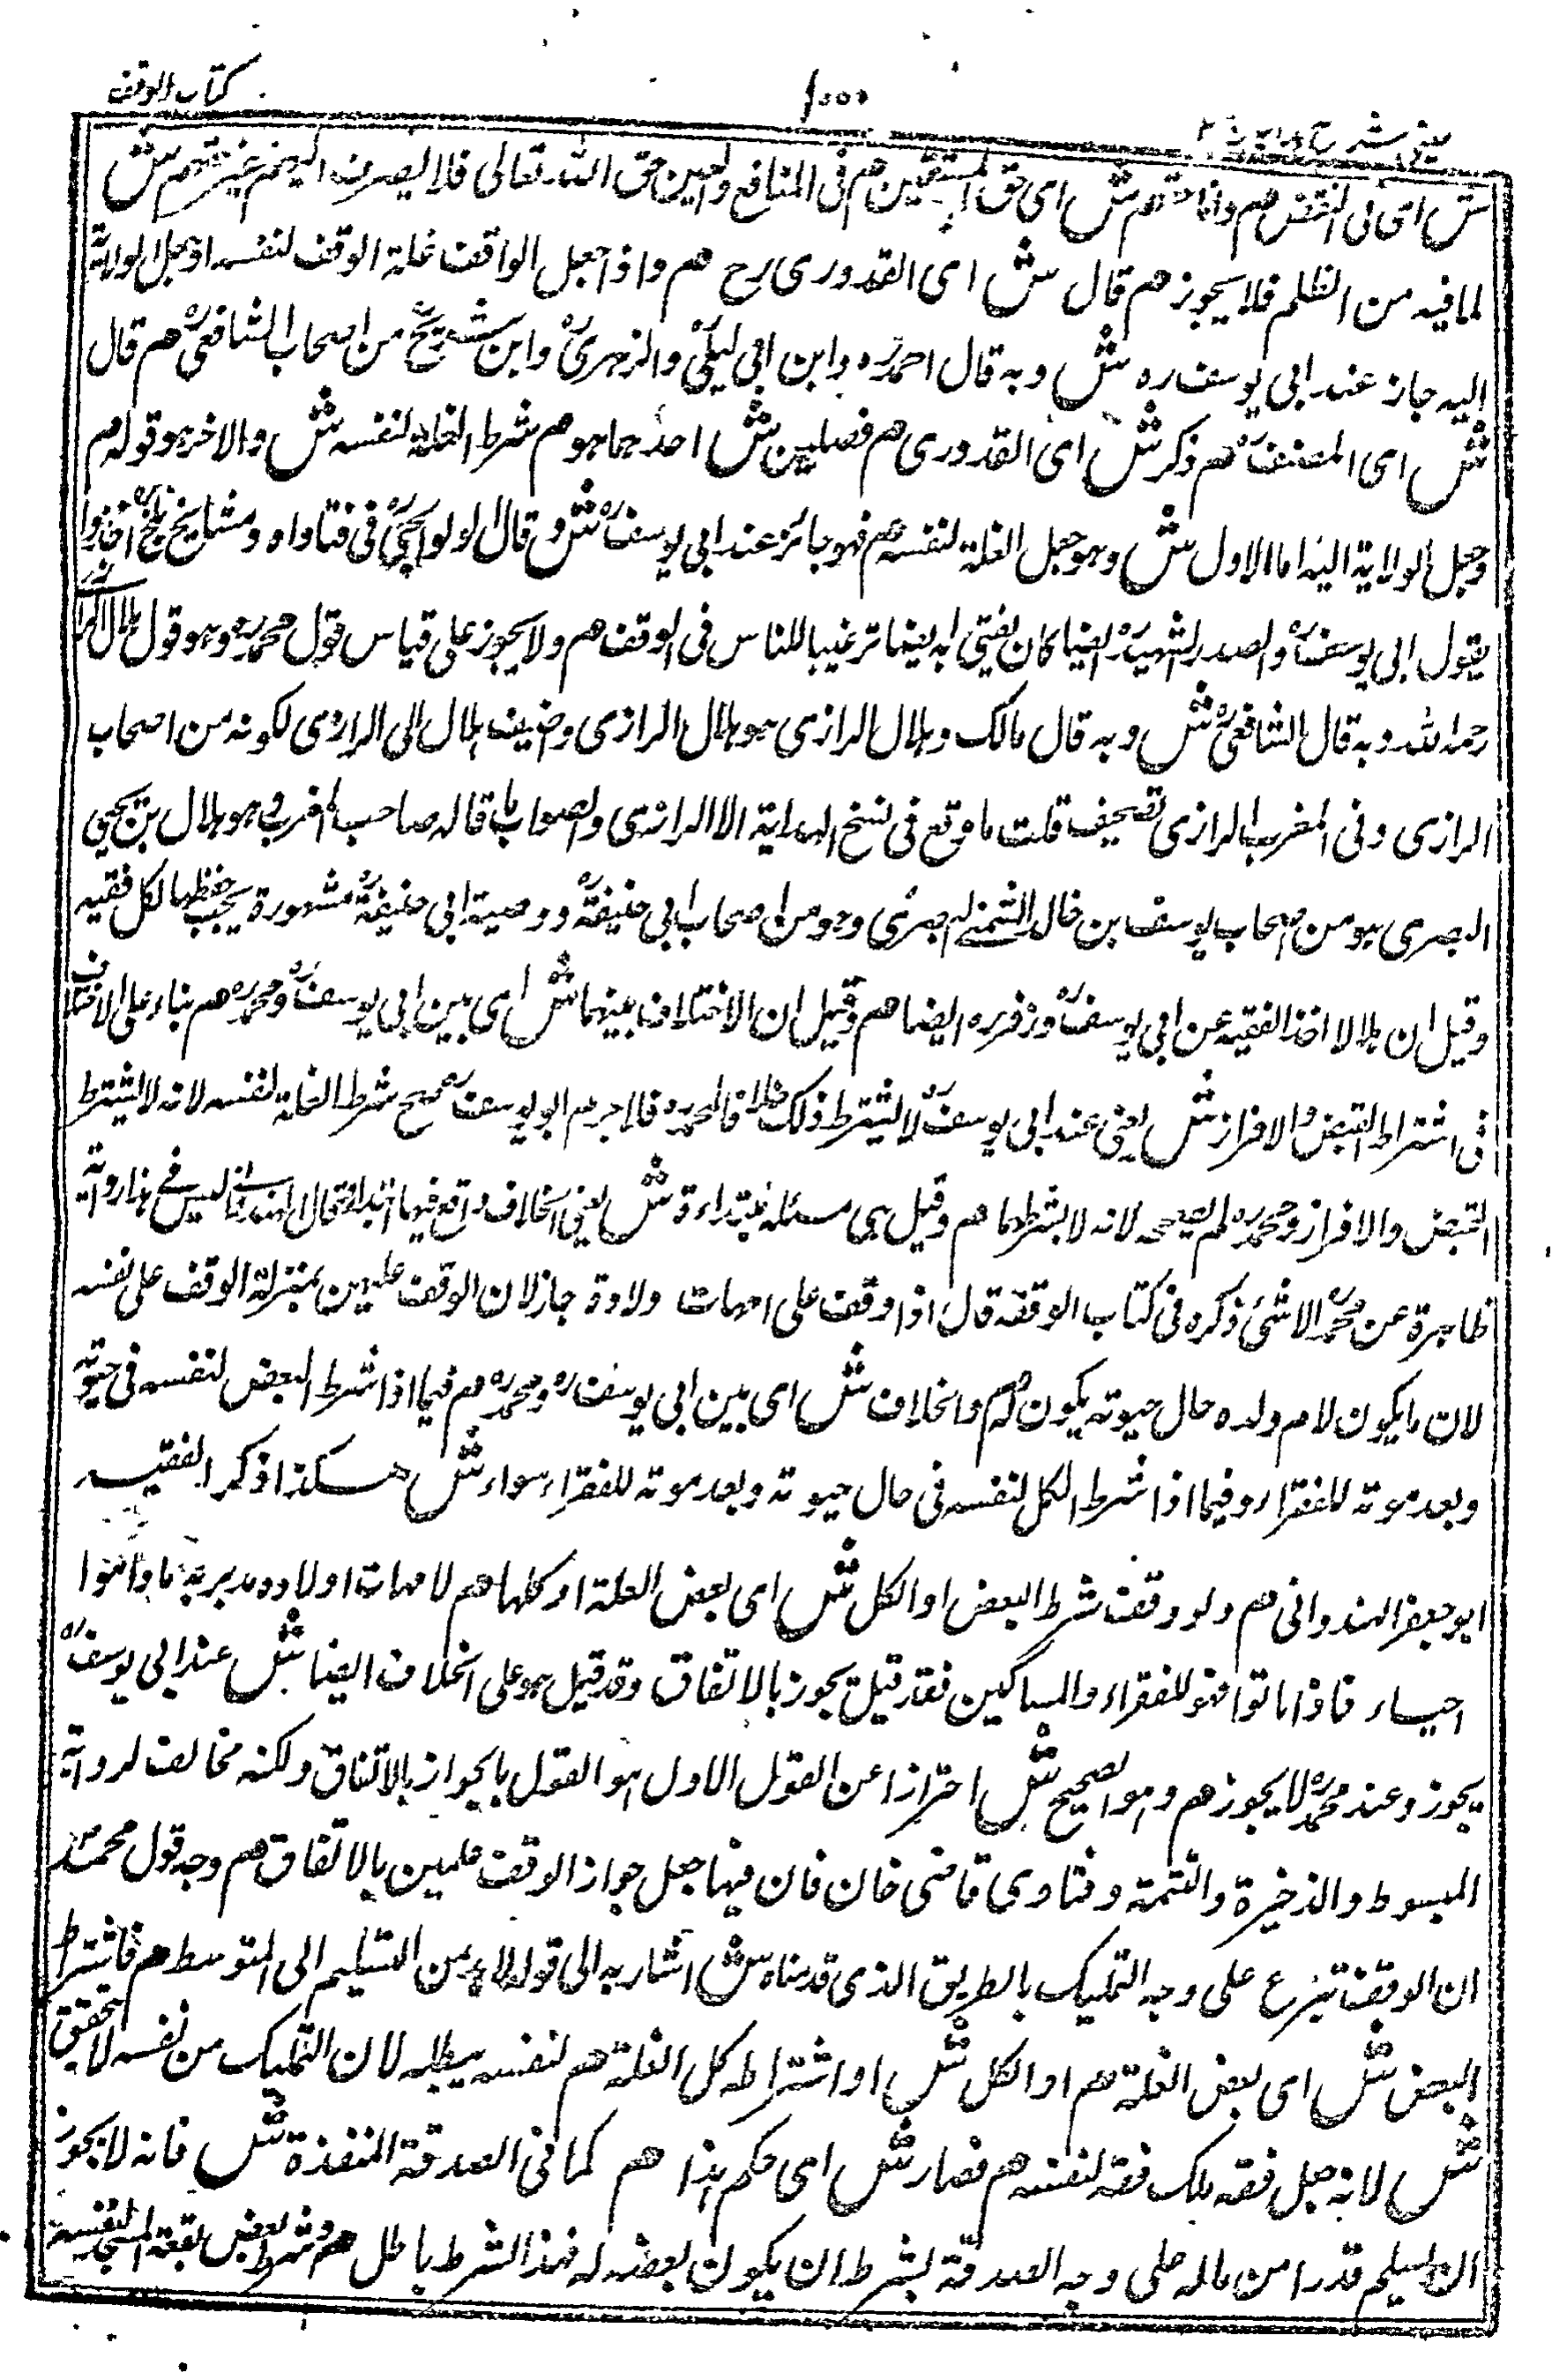 كتاب الوقف
١٠٠٠
عيني شرح هداية
ش اى فى النقض هم وانما حقهم ش اى حق المستحقين هم فى المنافع والعين حق الله تعالى فلا يصرف اليهم غير حقهم ش
لما فيه من الظلم فلا يجوز هم قال ش اى القدورى رح هم واذا جعل الواقف غلة الوقف لنفسه او جعل الولاية
اليه جاز عند ابى يوسف ره ش وبه قال احمد ره وابن ابى ليلى والزهرى وابن شريح من اصحاب الشافعى هم قال
ش اى المصنف هم ذكر ش اى القدورى هم فصلين ش احدهما هو هم شرط الغلة لنفسه ش والاخر هو قوله هم
وجعل الولاية اليه اما الاول ش وهو جعل الغلة لنفسه هم فهو جائز عند ابى يوسف ش وقال الولوالجى فى فتاواه ومشايخ بلخ اخذوا
بقول ابى يوسف والصدر الشهيد ايضا كان يفتى به ايضا ترغيبا للناس فى الوقف هم ولا يجوز على قياس قول محمد وهو قول هلال الرازى
رحمه الله وبه قال الشافعى ش وبه قال مالك وهلال الرازى هو هلال الرازى وضيف هلال الى الرازى لكونه من اصحاب
الرازى وفى المغرب الرازى تصحيف قلت ما وقع فى نسخ الهداية الا الرازى والصواب ما قاله صاحب المغرب وهو هلال بن يحيى
البصرى هو من اصحاب يوسف بن خالد السمتى البصرى وهو من اصحاب ابى حنيفة ووصية ابى حنيفة مشهورة يجب حفظها لكل فقيه
وقيل ان هلالا اخذ الفقيه عن ابى يوسف وزفر ره ايضا هم وقيل ان الاختلاف بينهما ش اى بين ابى يوسف ومحمد ره هم بناء على الاختلاف
فى اشتراط القبض والافراز ش يعنى عند ابى يوسف لا يشترط ذلك خلافا لمحمد ره فلا جرم ابو يوسف صحح شرط الغلة لنفسه لانه لا يشترط
القبض والافراز ومحمد ره لم يصححه لانه لا بشرطهما هم وقيل هى مسئلة مبتداءة ش يعنى الخلاف واقع فيها ابتداء وقال الهندوانى ليس فى هذا رواية
ظاهرة عن محمد الا شئ ذكره فى كتاب الوقفه قال اذا وقف على امهات ولاوة جاز لان الوقف عليهن بمنزلة الوقف على نفسه
لان ما يكون لام ولده حال حيوته يكون له هم والخلاف ش اى بين ابى يوسف ره ومحمد ره هم فيما اذا شرط البعض لنفسه فى حيوته
وبعد موته للفقراء وفيما اذا شرط الكل لنفسه فى حال حيوته وبعد موته للفقراء سواء ش هكذا ذكر الفقيه
ابو جعفر الهندوانى هم ولو وقف شرط البعض او الكل ش اى بعض الغلة او كلها هم لامهات اولاده ومدبريه ما داموا
احياء فاذا ماتوا فهو للفقراء والمساكين فقد قيل يجوز بالاتفاق وقد قيل هو على الخلاف ايضا ش عند ابى يوسف ره
يجوز وعند محمد ره لا يجوز هم وهو الصحيح ش احترازا عن القول الاول هو القول بالجواز بالاتفاق ولكنه مخالف لرواية
المبسوط والذخيرة والتتمة وفتاوى قاضى خان فان فيها جعل جواز الوقف عليهن بالاتفاق هم وجه قول محمد
ان الوقف تبرع على وجه التمليك بالطريق الذى قدمناه ش اشار به الى قوله لابد من التسليم الى المتوسط هم فاشتراط
البعض ش اى بعض الغلة هم او الكل ش او اشتراطه كل الغلة هم لنفسه يبطله لان التمليك من نفسه لا يتحقق
ش لانه جعل فقه ملك فقه لنفسه هم فصار ش اى حكم هذا هم كما فى الصدقة المنفذة ش فانه لا يجوز
ان يسلم قدرا من ماله على وجه الصدقة بشرط ان يكون بعضه له فهذا الشرط باطل هم وشرط بعض بقعة المسجد لنفسه